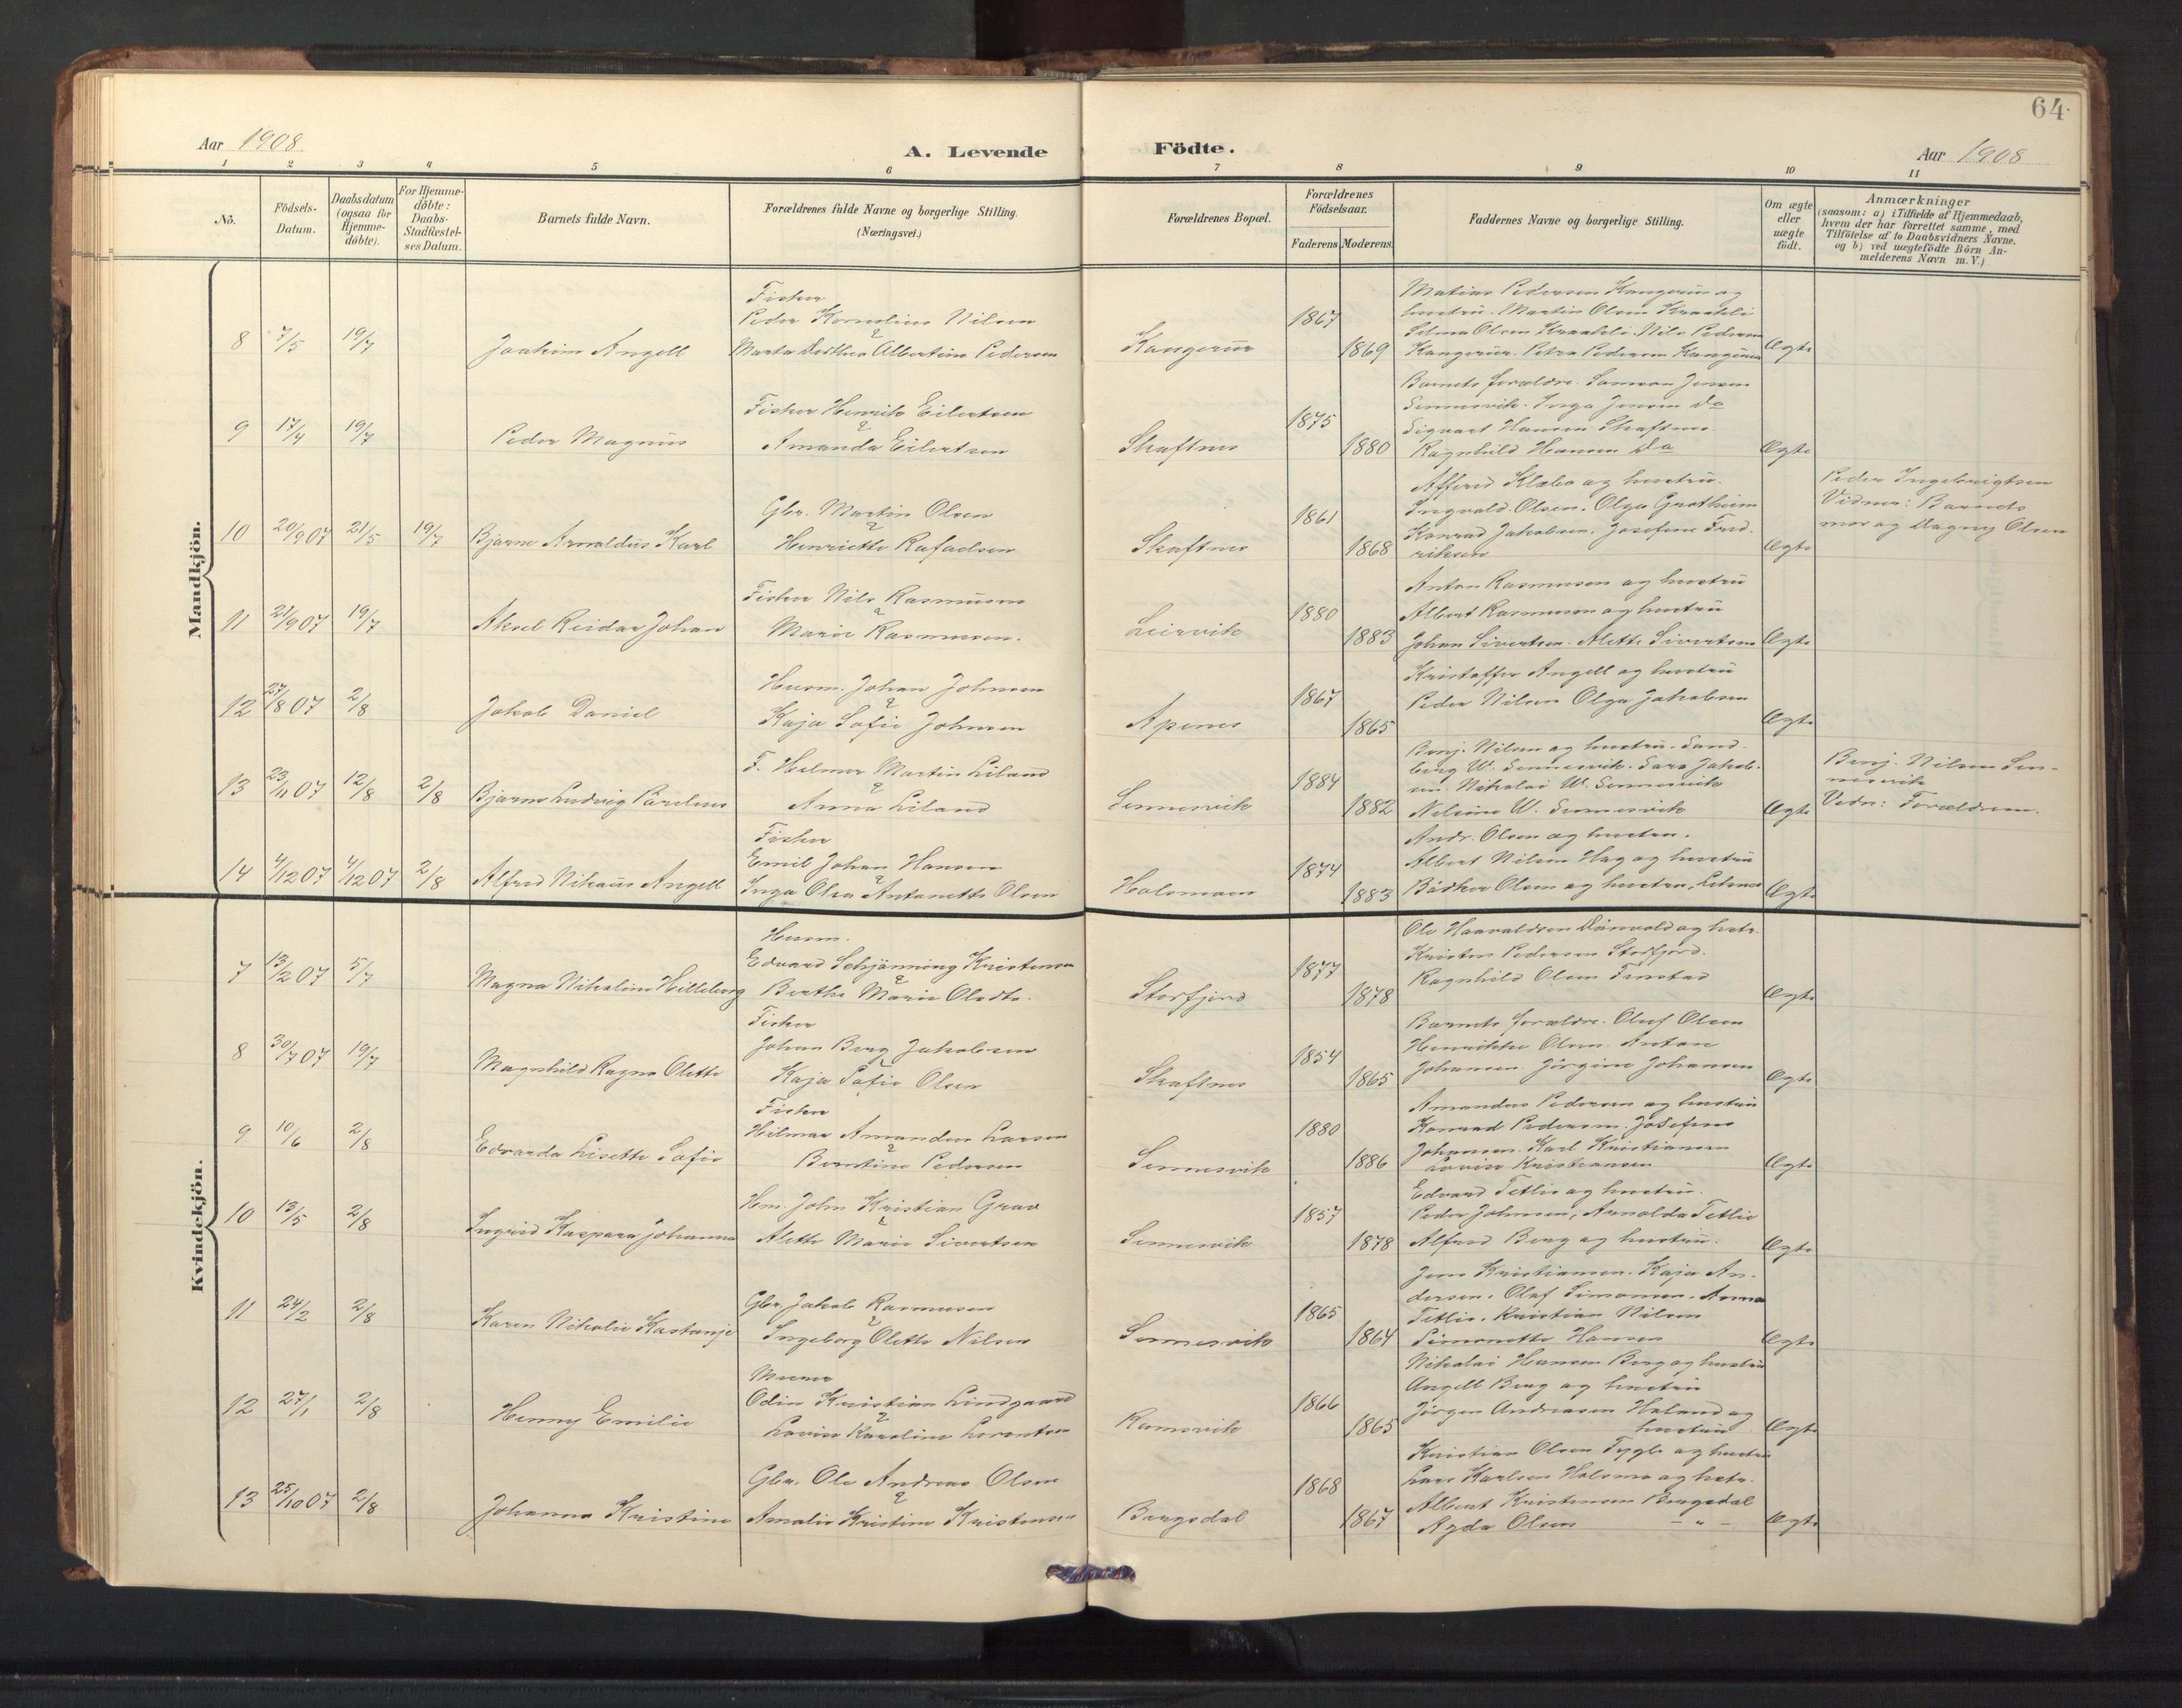 64.
Aar 1908
A. Levende
Födte.
Aar 1908
1 2 3 4 5 6 7 8 9 10 11
Nö.
Födsels-
Datum.
Daabsdatum
(ogsaa for
Hjemme-
döbte).
For Hjemme-
döbte:
Daabs-
Stadfestel-
ses Datum.
Barnets fulde Navn.
Forældrenes fulde Navne og borgerlige Stilling.
(Næringsvei.)
Forældrenes Bopæl.
Forældrenes
Födselsaar.
Faderens. Moderens.
Faddernes Navne og borgerlige Stilling.
Om ægte
eller
uægte
födt.
Anmærkninger
(saasom: a) i Tilfælde af Hjemmedaab,
hvem der har forrettet samme, med
Tilföielse af to Daabsvidners Navne,
og b) ved uægtefödte Börn An-
melderens Navn m. V.)
Mandkjön.
8 7/5 19/7 Joakim Angell
Fisker
Peder Kornelius Nilsen
&
Marta Dorthea Albertine Pedersen
Kangerur
1867
1869
Matias Pedersen Kangerur og
hustru. Martin Olsen
Selma Olsen Nils Pedersen
Kangerur. Petra Pedersen Kangerur
Ægte
9 17/4 19/7 Peder Magnus
Fisker Henrik Eilertsen
&
Amanda Eilertsen
Skaftnes
1875
1880
Barnets forældre. Samson Jensen
Sennesvik. Inga Jensen do
Sigvart Hansen Skaftnes.
Ragnhild Hansen do
Ægte
10 20/9 07 21/5 19/7 Bjarne Arnoldus Karl
Gbr. Martin Olsen
&
Henriette Rafaelsen
Skaftnes
1861
1868
Klæbo og hustru.
Ingvald Olsen. Olga Grotheim
Konrad Jakobsen. Josefine Fred-
riksen
Ægte
Peder Ingebrigtsen
Vidner: Barnets
mor og Dagny Olsen
11 21/9 07 19/7 Aksel Reidar Johan
Fisker Nils Rasmussen
&
Marie Rasmussen.
Leirvik
1880
1883
Anton Rasmussen og hustru
Albert Rasmussen og hustru
Johan Sivertsen. Alette Sivertsen
Ægte
12 27/8 07 2/8 Jakob Daniel
Husm. Johan Johnsen
&
Kaja Sofie Johnsen
Apenes
1867
1865
Kristoffer Angell og hustru
Peder Nilsen Olga Jakobsen
Ægte
13 23/11 07 12/8 2/8 Bjarne Ludvig Parelius
F. Helmer Martin Liland
&
Anna Liland
Sennesvik
1884
1882
Benj. Nilsen og hustru. Sand-
berg W. Sennesvik. Sara Jakob-
sen. Nikolai W. Sennesvik
W. Sennesvik
Ægte
Benj. Nilsen Sen-
nesvik
Vidn: Forældrene.
14 4/12 07 4/12 07 2/8 Alfred Nikaus Angell
Fisker
Emil Johan Hansen
&
Inga Olea Antonette Olsen
Holsmoen
1874
1883
Andr. Olsen og hustru.
Albert Nilsen Hag og hustru
Bödker Olsen og hustru,
Ægte
Kvindekjön.
7 13/2 07 5/7 Magna Nikoline Hilleborg
Husm.
Edvard Schjönning Kristensen
&
Berthe Marie Olsdtr.
Storfjord
1877
1878
Ole Haavaldsen og hstr.
Kristen Pedersen Storfjord.
Ragnhild Olsen Finstad
Ægte
8 30/7 07 19/7 Magnhild Ragna Olette
Fisker
Johan Berg Jakobsen
&
Kaja Sofie Olsen
Skaftnes
1854
1865
Barnets forældre. Oluf Olsen
Henrikke Olsen. Anton
Johansen. Jörgine Johansen
Ægte
9 10/6 2/8 Edvarda Lisette Sofie
Fisker
Hilmar Amandus Larsen
&
Berntine Pedersen
Sennesvik
1880
1886
Amandus Pedersen og hustru
Konrad Pedersen. Josefine
Johansen. Karl Kristiansen
Lovise Kristiansen
Ægte
10 13/5 2/8 Ingrid Kaspara Johanna
Hm. John Kristian Grav
&
Alette Marie Sivertsen
Sennesvik
1857
1878
Edvard Tetlie og hustru.
Peder Johnsen, Arnolda Tetlie
Alfred Berg og hustru.
Ægte
11 24/2 2/8 Karen Nikolie Kastanje
Gbr. Jakob Rasmussen
&
Ingeborg Olette Nilsen
Sennesvik
1865
1864
Jens Kristiansen. Kaja An-
dersen. Olaf Simonsen. Anna
Tetlie. Kristian Nilsen
Simonette Hansen
Ægte
12 27/1 2/8 Henny Emilie
Murer
Odin Kristian Lindgaard
&
Lovise Karoline Lorentsen
Ramsvik
1866
1865
Nikolai Hansen Berg og hustru
Angell Berg og hustru
Jörgen Andreasen Holand og
hustru
Ægte
13 25/10 07 2/8 Johanna Kristine
Gbr. Ole Andreas Olsen
&
Amalie Kristine Kristensen
Bergsdal
1868
1867
Kristian Olsen Tygle og hustru
Lars Karlsen Holsmo og hstr.
Albert Kristensen Bergsdal
Agda Olsen — " —
Ægte